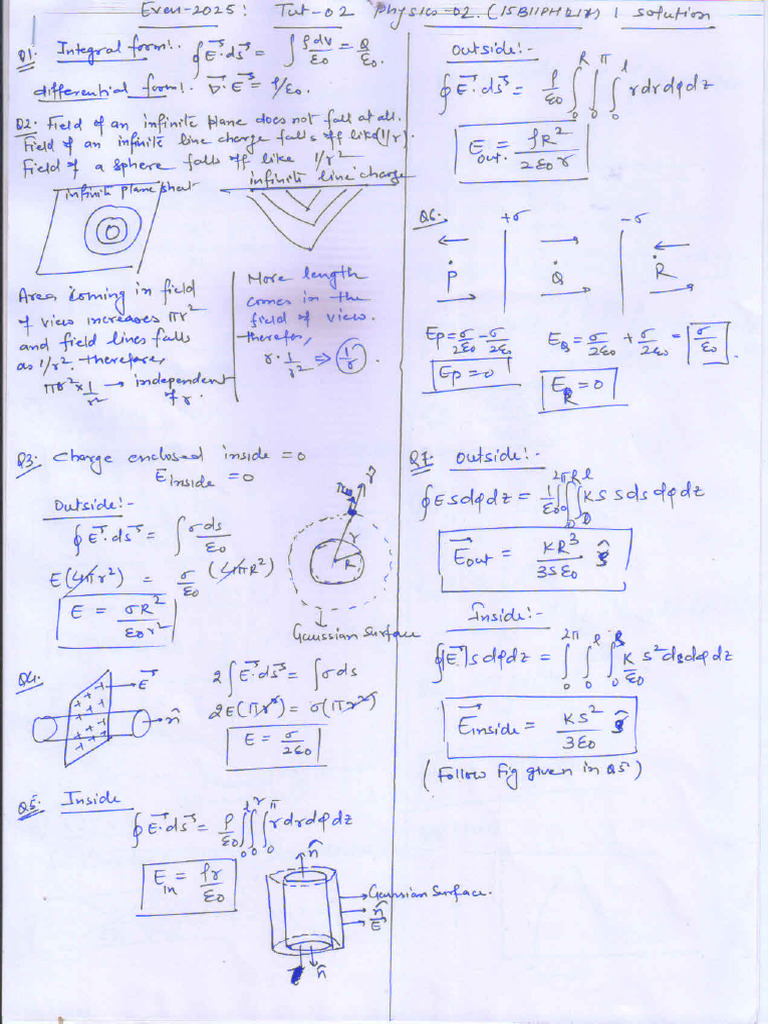 Even-2025: Tut-02 Physics-02 (15B11PH211) | solution
Q1. Integral form:. ∮E⃗·ds⃗ = ∫ρdv/ε0 = Q/ε0.
differential form:. ∇⃗·E⃗ = ρ/ε0.
Q2. Field of an infinite plane does not fall at all.
Field of an infinite line charge falls off like (1/r).
Field of a sphere falls off like 1/r²
infinite plane sheet
infinite line charge
Area coming in field
of view increases πr²
and field lines falls
as 1/r². therefore,
πr² × 1/r² → independent
of r.
More length
comes in the
field of view.
therefor,
r · 1/r² ⇒ 1/r.
Q3. Charge enclosed inside = 0
E inside = 0
Outside:-
∮E⃗·ds⃗ = ∫σds/ε0
E(4πr²) = σ/ε0 (4πR²)
E = σR²/ε0r²
r̂
r
R
Gaussian Surface
Q4.
E⃗
n̂
2∫E⃗·ds⃗ = ∫σds
2E(πr²) = σ(πr²)
E = σ/2ε0
Q5. Inside
∮E⃗·ds⃗ = ρ/ε0 ∫₀^l ∫₀^r ∫₀^π rdrdφdz
E in = ρr/ε0
n̂
Gaussian Surface.
n̂
E⃗
n̂
Outside:-
∮E⃗·ds⃗ = ρ/ε0 ∫₀^R ∫₀^π ∫₀^l rdrdφdz
E out. = ρR²/2ε0r
Q6. +σ -σ
P Q R
Ep = σ/2ε0 - σ/2ε0 EQ = σ/2ε0 + σ/2ε0 = σ/ε0.
Ep = 0 ER = 0
Q7. Outside:-
∮E s dφdz = 1/ε0 ∫₀^2π ∫₀^R ∫₀^l ks sds dφdz
E⃗out = KR³/3sε0 ŝ
Inside:-
∮|E⃗|sdφdz = ∫₀^2π ∫₀^l ∫₀^s K/ε0 s²dsdφdz
E⃗inside = Ks²/3ε0 ŝ
(Follow Fig given in Q5)